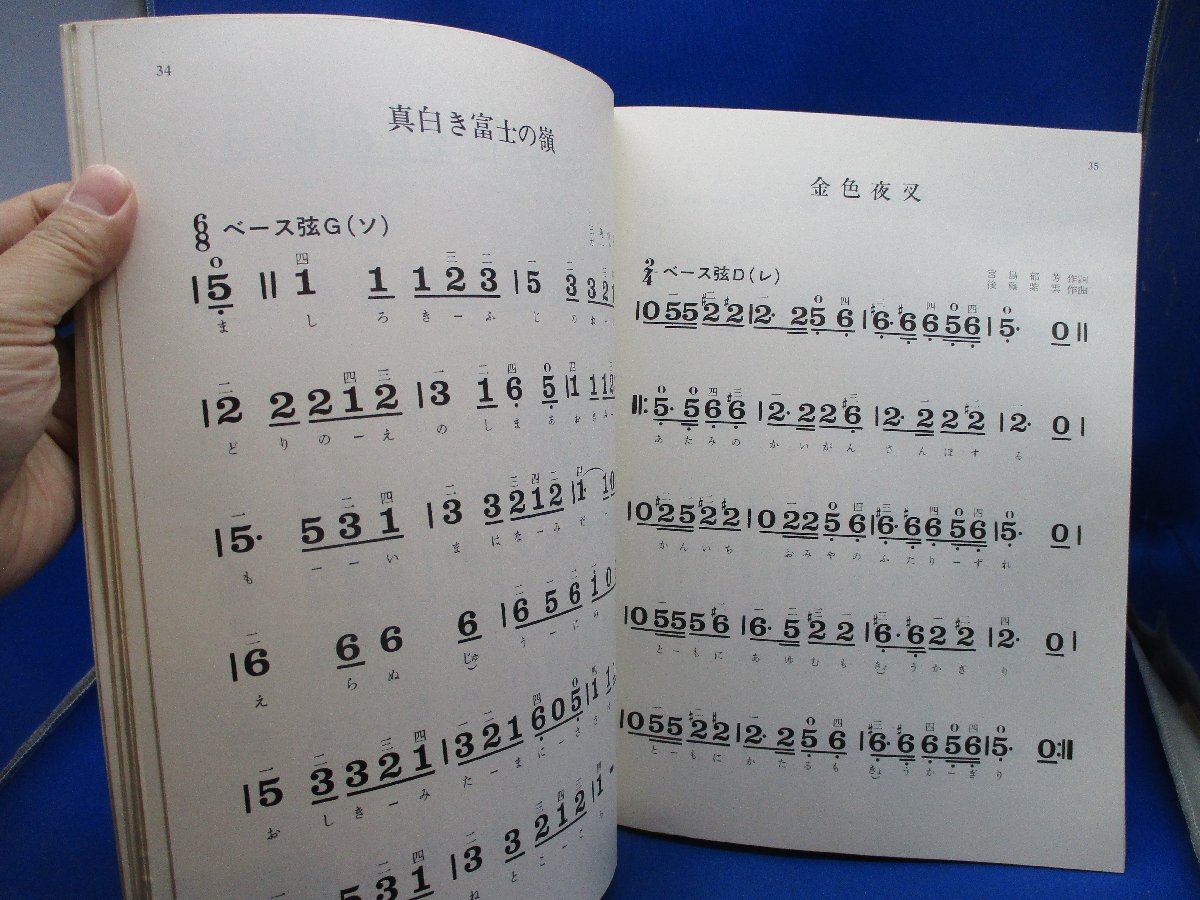 34
真白き富士の嶺
6/8 ベース弦G(ソ)
0 四 二 三 一 二
|5 || 1 1 1 2 3 | 5 3 3 2 1
ま し ろ き ー ふ じ の ね ー
二 四 三 一 二 四 0 四
| 2 2 2 1 2 | 3 1 6 5 | 1 1 1 2
ど り の ー え の し ま あ お
一 二 四 二 三 四 二 四
| 5・ 5 3 1 | 3 3 2 1 2 | 1・ 1 0
も ー ー い ま は な ー み だ
二 二 一 二 一
| 6 6 6 6 | 6 5 6 1 0
え ら ぬ じゅ う ー に
一 二 三 四 二 三 四 0 四
| 5 3 3 2 1 | 3 2 1 6 0 5 | 1 1
お し き ー み た ー ま に ー さ さ
一 二 四 二 三 四 三 四
5 3 1 | 3 3 2 1 2 | 1
ね と こ ー こ
35
金色夜叉
2/4 ベース弦D(レ)
宮島郁芳 作詞
後藤紫雲 作曲
|0 5 5 #2 2 | 2・ 2 5 6 | #6・ #6 6 5 6 | 5・ 0 ||
||: 5・ 5 6 #6 | 2・ 2 2 #6 | 2・ 2 2 #2 | 2・ 0 |
あ た み の か い が ん さ ん ぽ す る
|0 #2 5 #2 2 | 0 2 2 5 6 | #6・ #6 6 5 6 | 5・ 0 |
か ん い ち お み や の ふ た り ー ず れ
|0 5 5 5 #6 | 6・ 5 #2 2 | #6・ 6 2 #2 | 2・ 0 |
と ー も に あ ゆ む も きょ う か ぎ り
|0 5 5 #2 2 | 2・ 2 5 6 | #6・ #6 6 5 6 | 5・ 0 :||
と ー も に か た る も きょ う か ー ぎ り